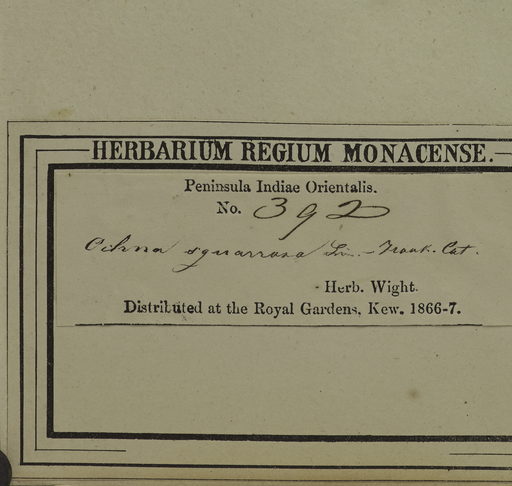 HERBARIUM REGIUM MONACENSE.
Peninsula Indiae Orientalis.
No. 392
Ochna squarrosa Lin. - Cat.
Herb. Wight.
Distributed at the Royal Gardens, Kew. 1866-7.